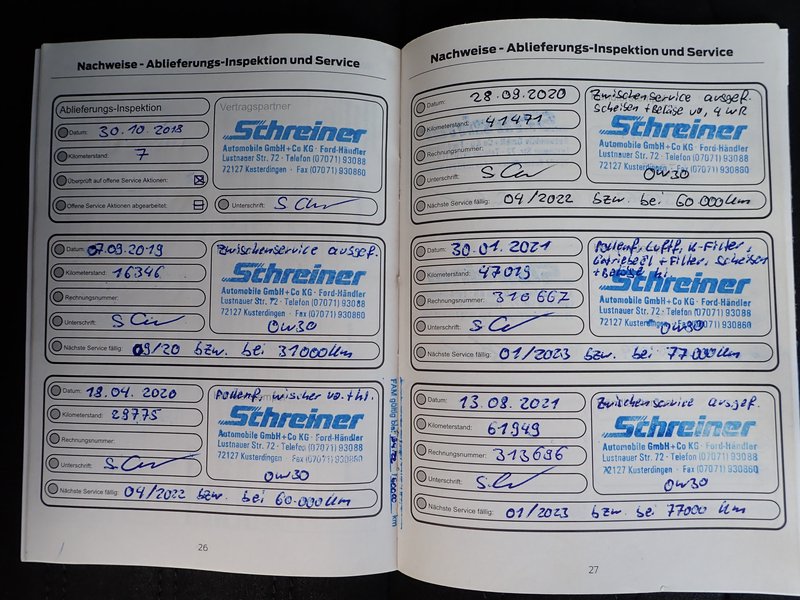 Nachweise - Ablieferungs-Inspektion und Service
Ablieferungs-Inspektion
Datum: 30.10.2018
Kilometerstand: 7
Überprüft auf offene Service Aktionen:
Offene Service Aktionen abgearbeitet:
Vertragspartner
Schreiner
Automobile GmbH+Co KG · Ford-Händler
Lustnauer Str. 72 · Telefon (07071) 93088
72127 Kusterdingen · Fax (07071) 930860
Unterschrift:
Datum: 07.09.2019
Kilometerstand: 16346
Rechnungsnummer:
Unterschrift:
Zwischenservice ausgef.
Schreiner
Automobile GmbH+Co KG · Ford-Händler
Lustnauer Str. 72 · Telefon (07071) 93088
72127 Kusterdingen · Fax (07071) 930860
0W30
Nächste Service fällig: 09/20 bzw. bei 31000km
Datum: 18.04.2020
Kilometerstand: 29775
Rechnungsnummer:
Unterschrift:
Pollenf, wischer vo. + hi.
Schreiner
Automobile GmbH+Co KG · Ford-Händler
Lustnauer Str. 72 · Telefon (07071) 93088
72127 Kusterdingen · Fax (07071) 930860
0W30
Nächste Service fällig: 04/2022 bzw. bei 60.000km
26
Nachweise - Ablieferungs-Inspektion und Service
Datum: 28.09.2020
Kilometerstand: 41471
Rechnungsnummer:
Unterschrift:
Zwischenservice ausgef.
Scheiben + Beläge vo,
Schreiner
Automobile GmbH+Co KG · Ford-Händler
Lustnauer Str. 72 · Telefon (07071) 93088
72127 Kusterdingen · Fax (07071) 930860
0W30
Nächste Service fällig: 04/2022 bzw. bei 60000km
Datum: 30.01.2021
Kilometerstand: 47019
Rechnungsnummer: 310667
Unterschrift:
Pollenf, Luftf, K-Filter,
Getriebeöl + Filter, Scheiben
+ Beläge hi
Schreiner
Automobile GmbH+Co KG · Ford-Händler
Lustnauer Str. 72 · Telefon (07071) 93088
72127 Kusterdingen · Fax (07071) 930860
0W30
Nächste Service fällig: 01/2023 bzw. bei 77000km
Datum: 13.08.2021
Kilometerstand: 61949
Rechnungsnummer: 313696
Unterschrift:
Zwischenservice ausgef.
Schreiner
Automobile GmbH+Co KG · Ford-Händler
Lustnauer Str. 72 · Telefon (07071) 93088
72127 Kusterdingen · Fax (07071) 930860
0W30
Nächste Service fällig: 01/2023 bzw. bei 77000 km
27